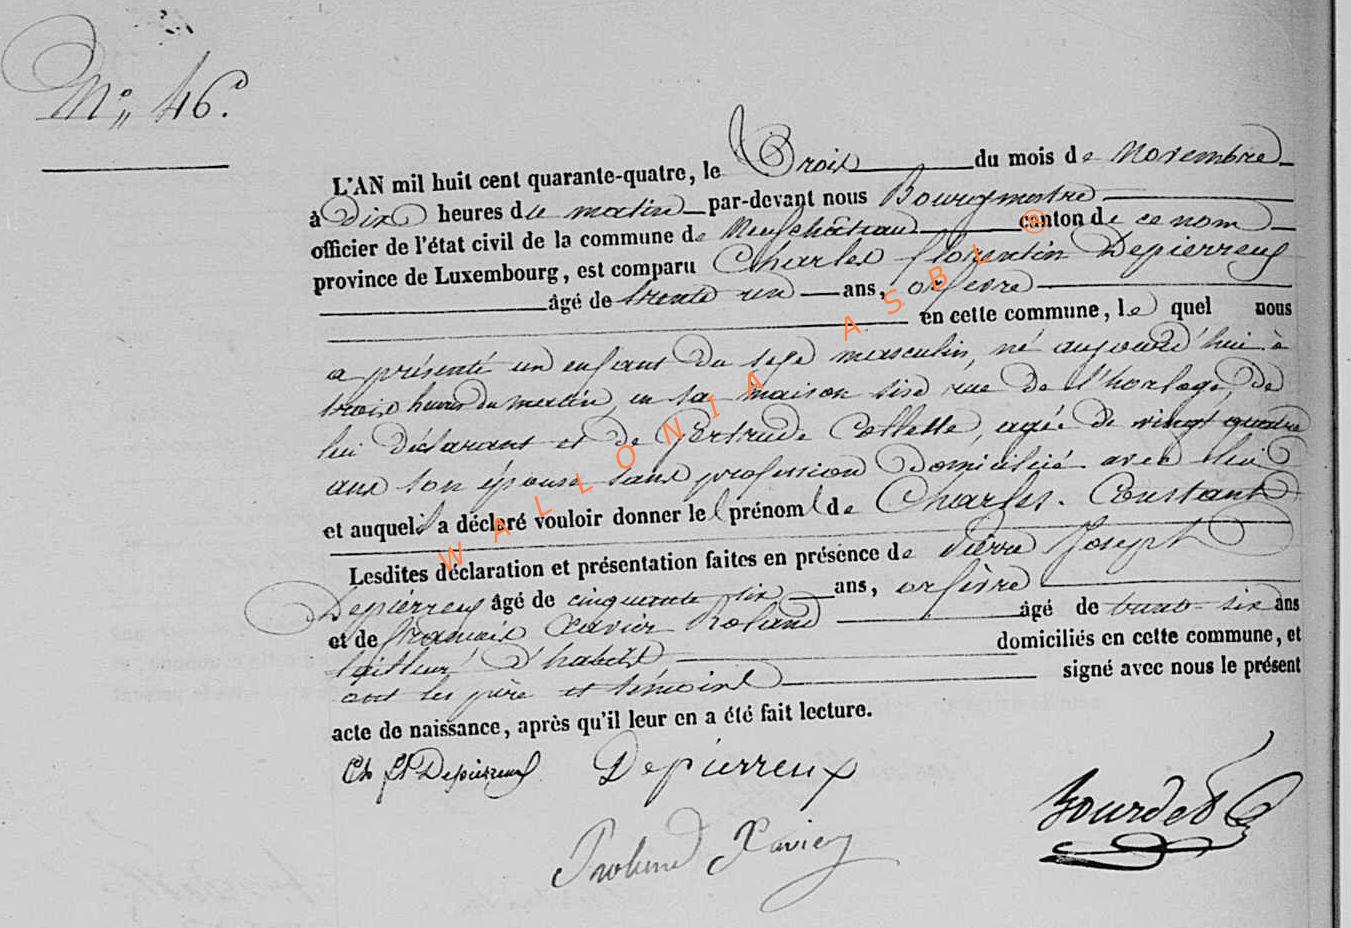 N° 46.
L'AN mil huit cent quarante-quatre, le Trois du mois de Novembre
à Dix heures du matin par-devant nous Bourgmestre
officier de l'état civil de la commune de Neufchâteau canton de ce nom
province de Luxembourg, est comparu Charles florentin Depierreux
âgé de trente un ans, orfèvre
en cette commune, le quel nous
a présenté un enfant du sexe masculin, né aujourd'hui à
trois heures du matin, en sa maison sise rue de l'horloge, de
lui déclarant et de Gertrude Collette, agée de vingt quatre
ans son épouse sans profession Domicilié avec lui
et auquel il a déclaré vouloir donner le prénom de Charles. Constant
Lesdites déclaration et présentation faites en présence de Pierre Joseph
Depierreux âgé de cinquante six ans, orfèvre
et de François Xavier Roland âgé de trente six ans
tailleur d'habits domiciliés en cette commune, et
ont les père et témoins signé avec nous le présent
acte de naissance, après qu'il leur en a été fait lecture.
Ch fl Depierreux Depierreux
Roland Xavier
WALLONIA ASBL ®